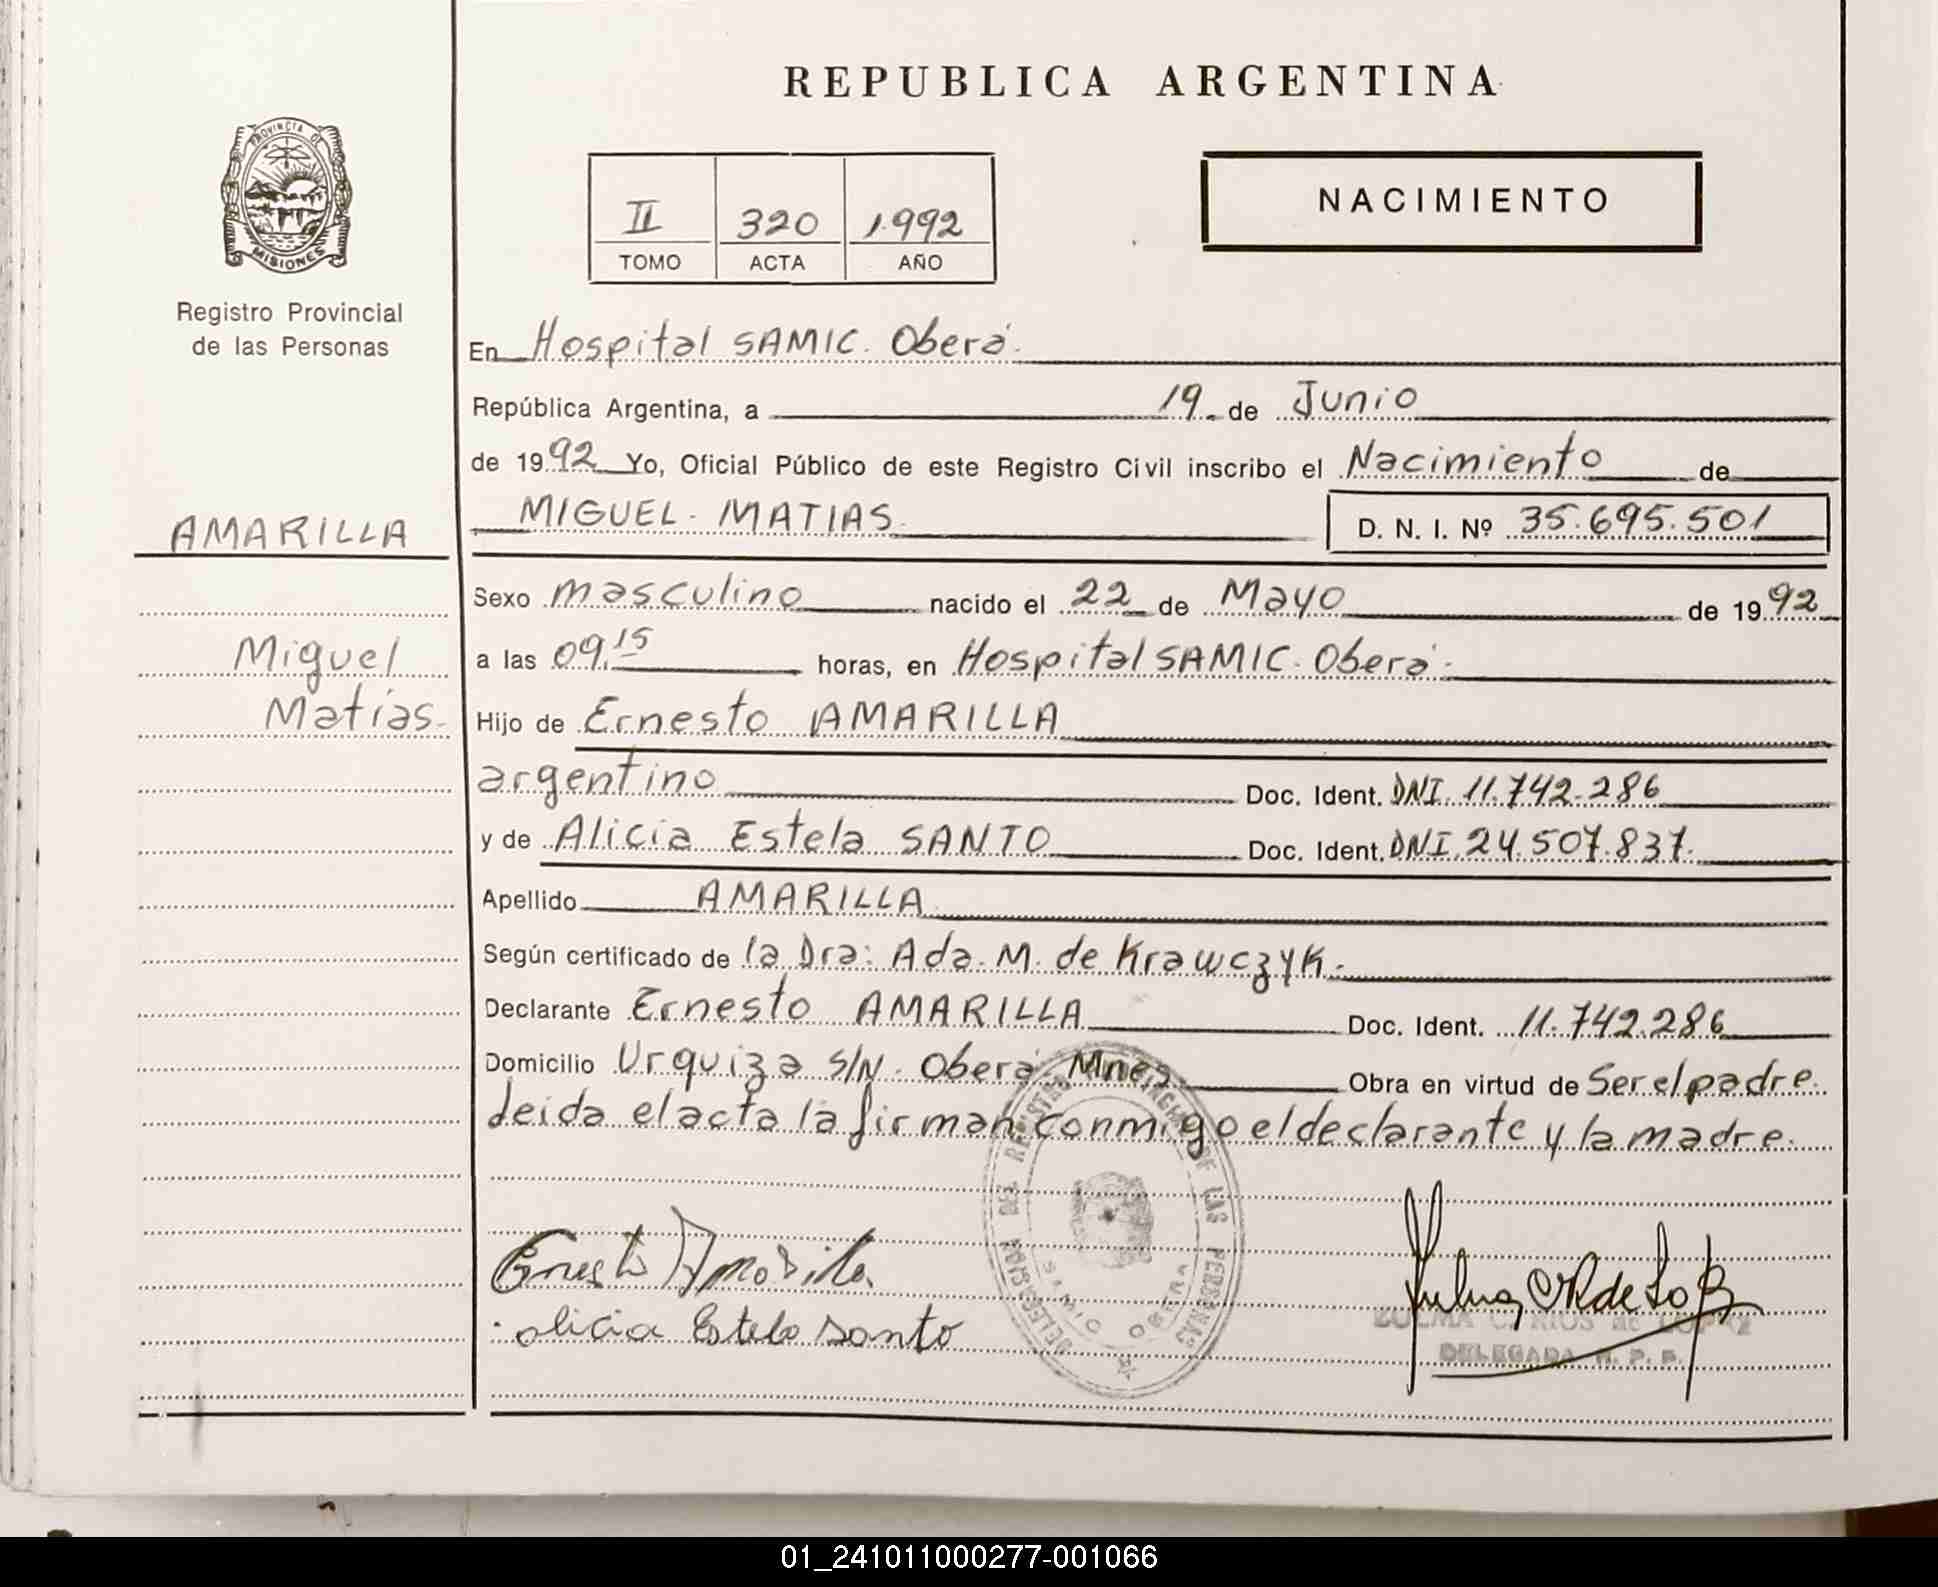 REPUBLICA ARGENTINA
PROVINCIA DE
MISIONES
Registro Provincial
de las Personas
II 320 1992
TOMO ACTA AÑO
NACIMIENTO
En Hospital SAMIC. Oberá.
República Argentina, a 19 de Junio
de 1992 Yo, Oficial Público de este Registro Civil inscribo el Nacimiento de
AMARILLA
MIGUEL MATIAS D. N. I. Nº 35.695.501
Sexo masculino nacido el 22 de Mayo de 1992
Miguel
Matías.
a las 09.15 horas, en Hospital SAMIC. Oberá.
Hijo de Ernesto AMARILLA
argentino Doc. Ident. DNI. 11.742.286
y de Alicia Estela SANTO Doc. Ident. DNI. 24.507.837.
Apellido AMARILLA
Según certificado de la Dra: Ada. M. de Krawczyk.
Declarante Ernesto AMARILLA Doc. Ident. 11.742.286
Domicilio Urquiza S/N. Oberá Mnes Obra en virtud de Ser el padre.
Leida el acta la firman conmigo el declarante y la madre.
Ernesto Amarilla
Alicia Estela Santo
DELEGACION DEL REGISTRO DE LAS PERSONAS
SAMIC OBERA
DELEGADA R. P. P.
01_241011000277-001066